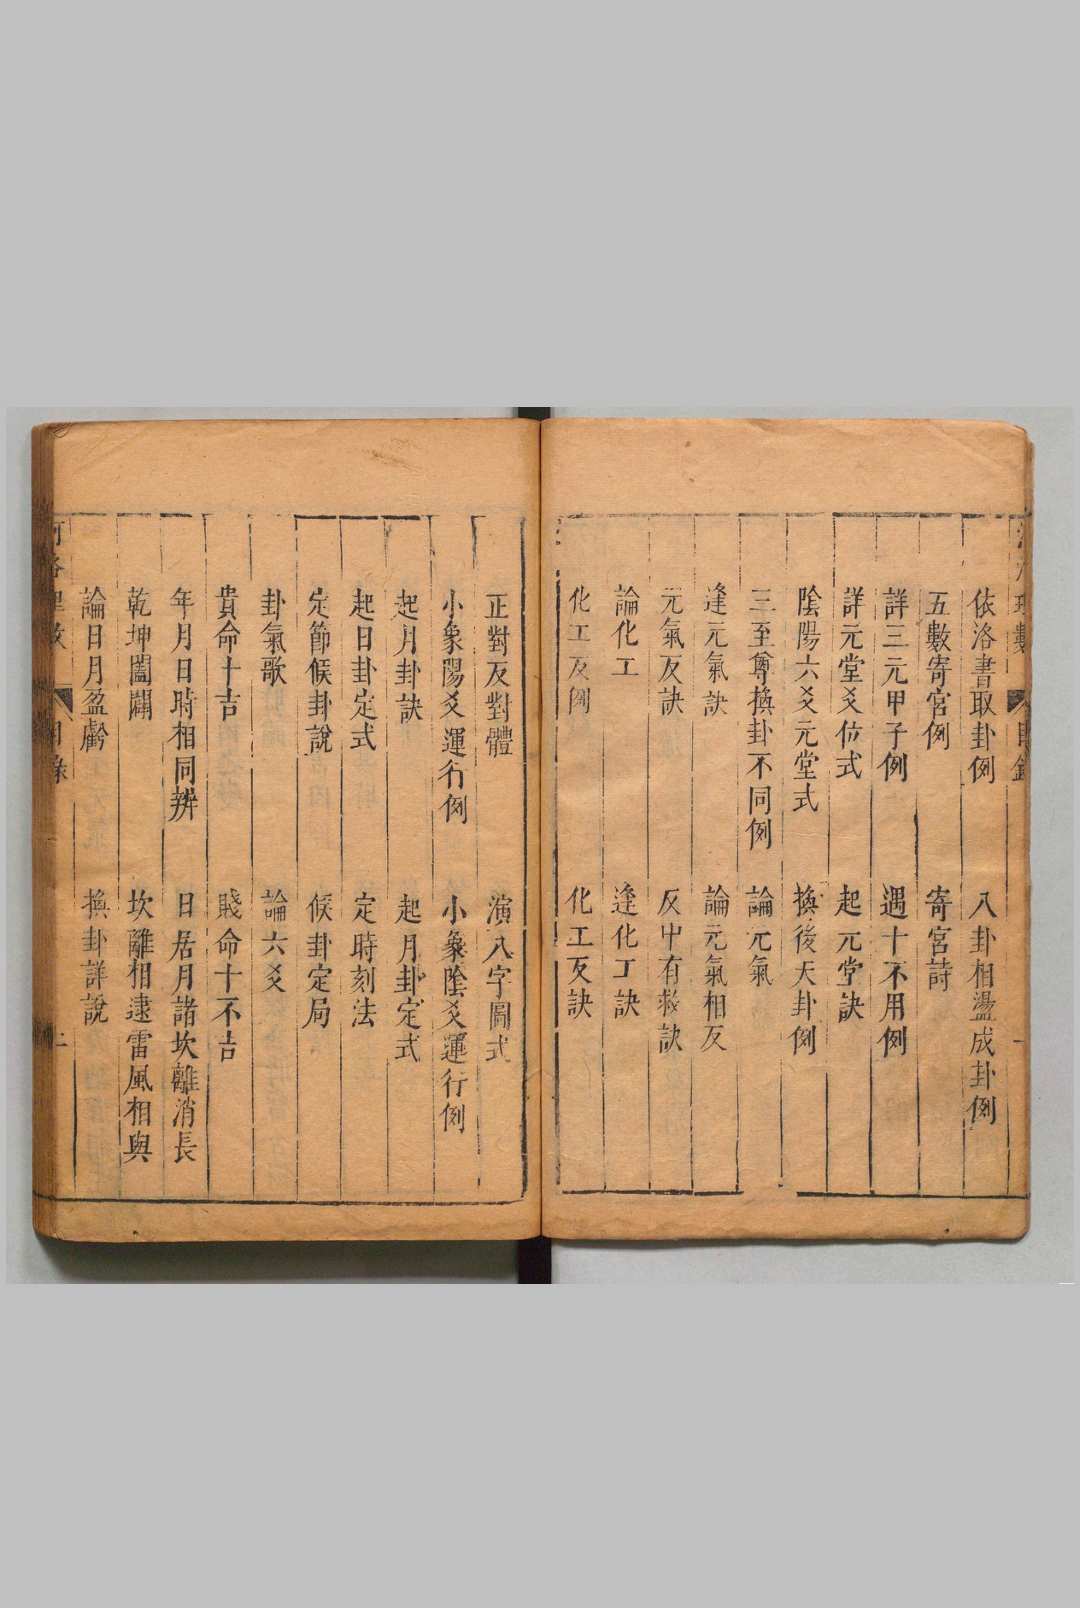 依洛書取卦例 八卦相盪成卦例
五數寄宮例 寄宮詩
詳三元甲子例 遇十不用例
詳元堂爻位式 起元堂訣
陰陽六爻元堂式 換後天卦例
三至尊換卦不同例 論元氣
逢元氣訣 論元氣相反
元氣反訣 反中有救訣
論化工 逢化工訣
化工反例 化工反訣
正對反對體 演八字圖式
小象陽爻運行例 小象陰爻運行例
起月卦訣 起月卦定式
起日卦定式 定時刻法
定節候卦說 候卦定局
卦氣歌 論六爻
貴命十吉 賤命十不吉
年月日時相同辨 日居月諸坎離消長
乾坤闔闢 坎離相逮雷風相與
論日月盈虧 換卦詳說
河洛理數 目錄 二